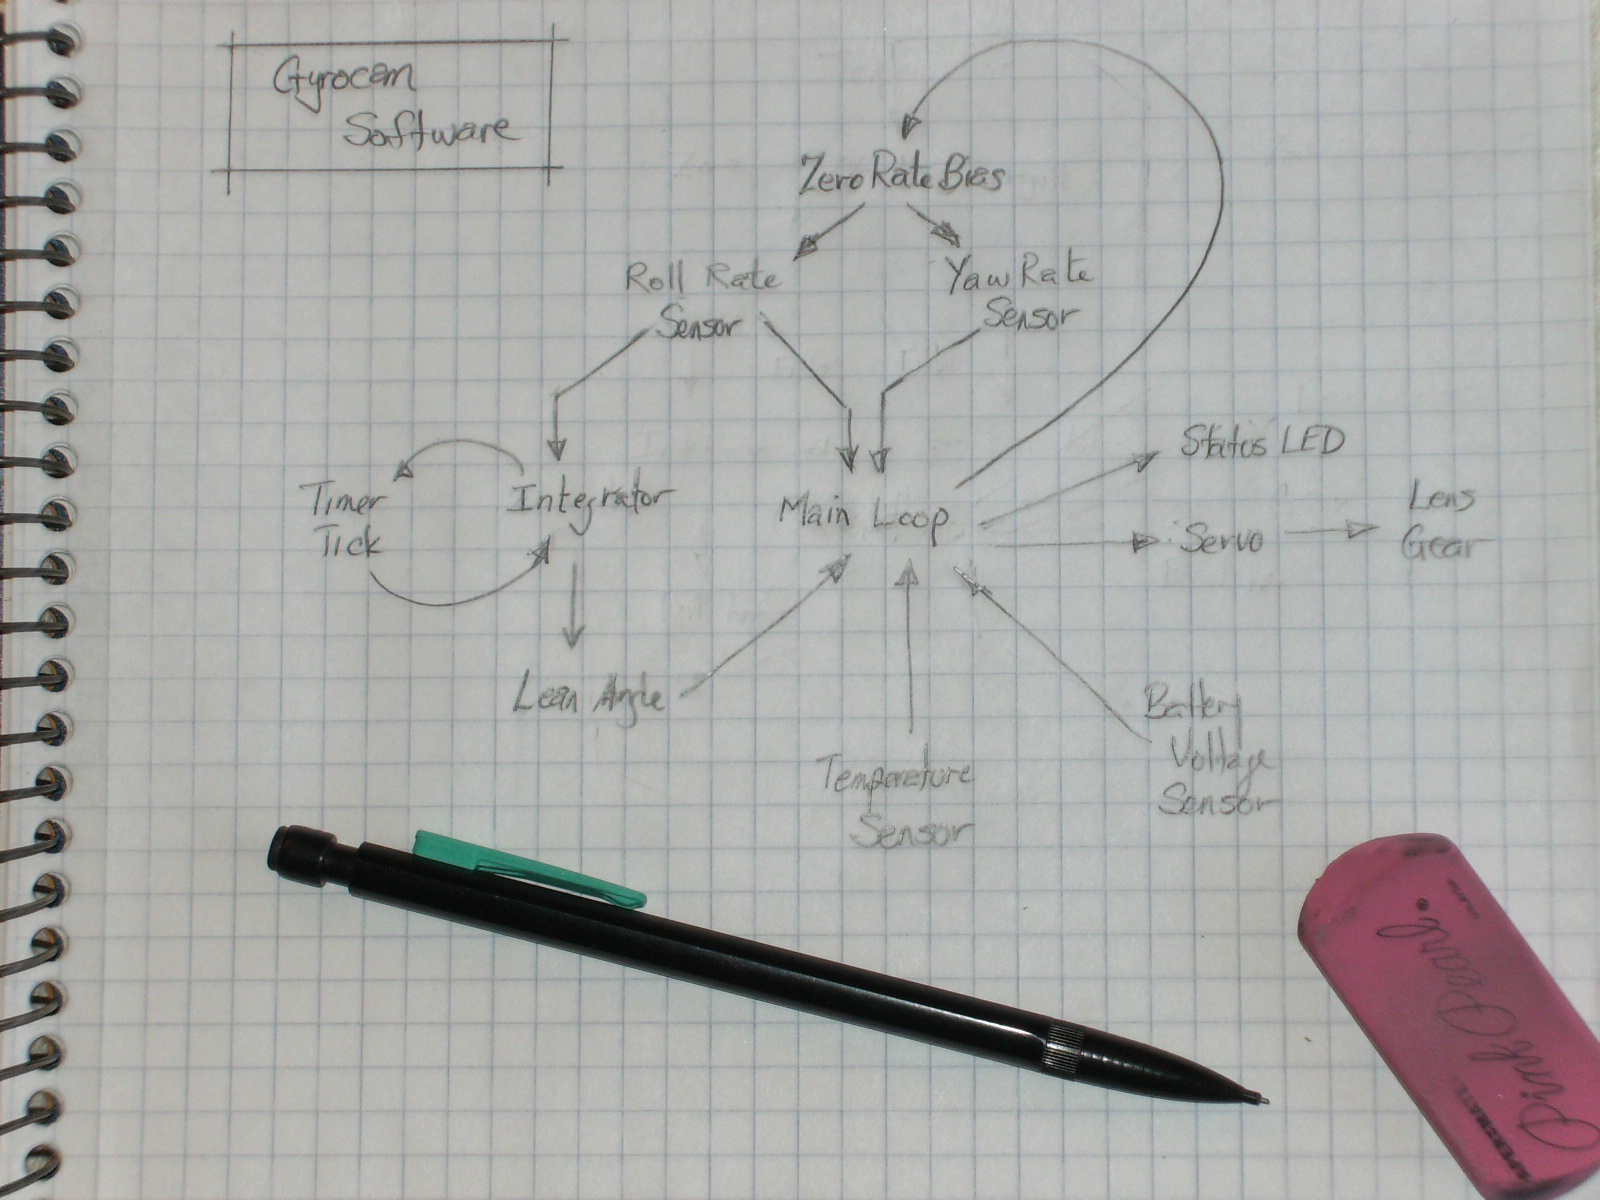 Gyrocam
Software
Zero Rate Bias
Roll Rate
Sensor
Yaw Rate
Sensor
Timer
Tick
Integrator
Main Loop
Status LED
Servo
Lens
Gear
Lean Angle
Temperature
Sensor
Battery
Voltage
Sensor
Pink Pearl®